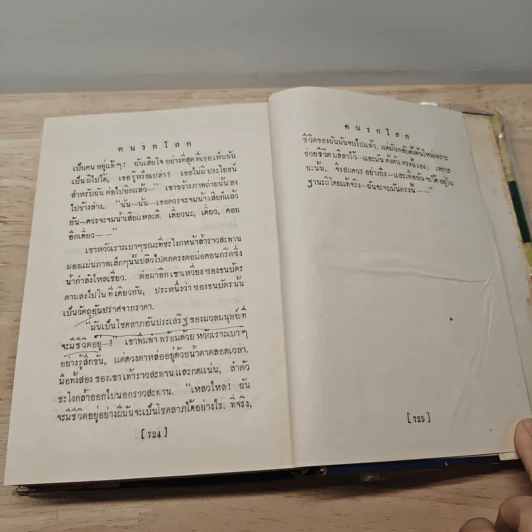 คนรกโลก
เป็นคน อยู่แท้ๆ! ฉันเสียใจ อย่างที่สุด ที่เธอ เห็นฉัน
เป็น ผีไปได้, เธอ รู้หรือเปล่า? เธอไม่มี ประโยชน์
สำหรับฉัน ต่อไปอีกแล้ว—" เขาขว้างภาพถ่ายนั้น ลง
ไปข้างล่าง, "นั่น—นั่น—เธอควรจะจมน้ำ เสียก็แล้ว
ฉัน—ควรจะจมน้ำเสียแหละดี, เดี๋ยวนะ, เดี๋ยว, คอย
อีกเดี๋ยว——"
เขาหัวเราะเบาๆขณะที่ชะโงกหน้าล้ำราวสะพาน
มองแผ่นภาพเล็กๆนั้นปลิวไปตกตรงคอม่อคอนกรีตซึ่ง
น้ำกำลังไหลเชี่ยว, ต่อมาอีก เขาเหวี่ยงซองธนบัตร
ตามลงไปใน ที่ เดียวกัน, ประหนึ่งว่า ซองธนบัตรนั้น
เป็นวัตถุอันปราศจากราคา.
"มันเป็นโชคลาภอันประเสริฐ ของมวลมนุษย์ ที่
จะมี ชีวิตอยู่—?" เขาพึมพำ พร้อมด้วย หัวเราะเบาๆ
อย่างรู้สึกขัน, แต่ดวงตาหล่ออยู่ด้วยน้ำตาตลอดเวลา.
มือทั้งสอง ของเขา เท้าราวสะพาน และกดแน่น, ลำตัว
ชะโงกล้ำออกไปนอกราวสะพาน. "เหลวไหล! ฉัน
จะมีชีวิตอยู่อย่างผีมันจะเป็นโชคลาภได้อย่างไร. ที่จริง,
[ 724 ]
คนรกโลก
ชีวิตของฉันมันจบไปแล้ว, แต่
ช่วยชีวิต
ยะนั้น, จึงสมควร อย่างยิ่ง—และ
ฐานะผีโดยแท้จริง—ฉันจะจบมันตรงนี้——"
[ 725 ]